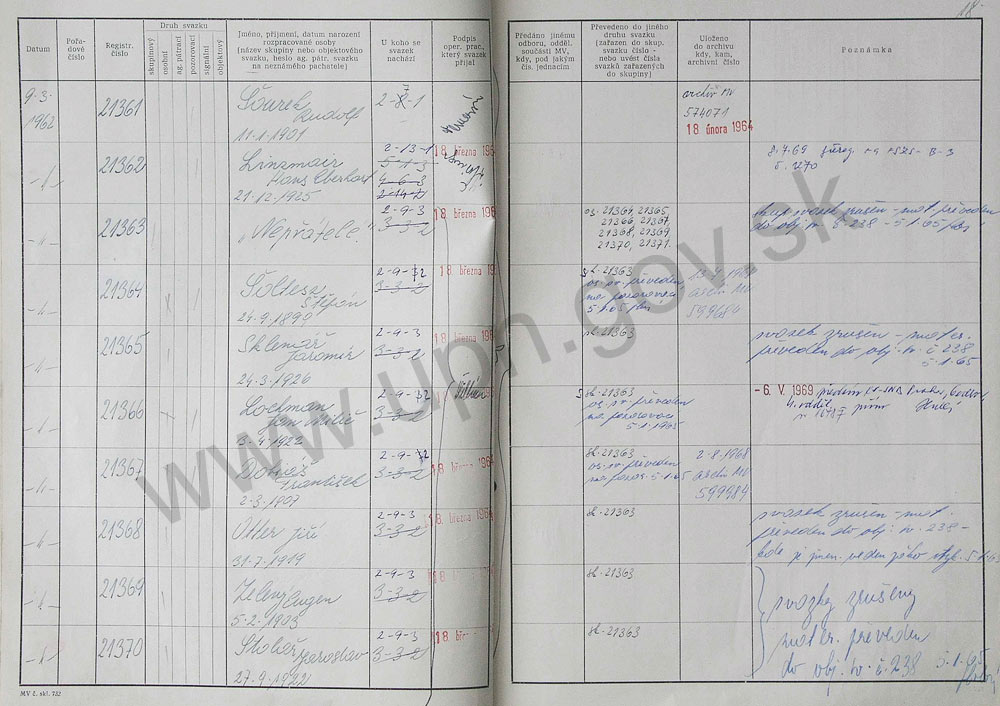 18.
Datum
Pořadové číslo
Registr. číslo
Druh svazku
skupinový
osobní
ag. pátrací
pozorovací
signální
objektový
Jméno, příjmení, datum narození
rozpracované osoby
(název skupiny nebo objektového
svazku, heslo ag. pátr. svazku
na neznámého pachatele)
U koho se
svazek
nachází
Podpis
oper. prac.,
který svazek
přijal
Předáno jinému
odboru, odděl.
součásti MV,
kdy, pod jakým
čís. jednacím
Převedeno do jiného
druhu svazku
(zařazen. do skup.
svazku číslo -
nebo uvést čísla
svazků zařazených
do skupiny)
Uloženo
do archivu
kdy, kam,
archivní číslo
Poznámka
9-3-
1962
21361
Šourek
Rudolf
11.1.1901
2-8-1
archiv MV
574071
18 února 1964
21362
Linzmair
Hans Eberhart
21.12.1925
2-13-1
5-1-3
4-6-3
2-14-2
18 března 196
8.7.69
21363
"Nepřátelé."
2-9-3
3-3-2
18 března 196
os. 21364, 21365,
21366, 21367,
21368, 21369
21370, 21371.
svazek zrušen - mat. převeden
do obj. sv. č. 238 - 5.1.65
21364
Šoltesz
Štěpán
24.9.1890
3-3-2
18 března 196
sk. 21363
os. sv. převeden
na pozorovací
5.1.65
archiv MV
21365
Sklenář
Jaromír
24.3.1926
2-9-3
3-3-2
18 března 196
sk. 21363
svazek zrušen - mater.
převeden do obj. sv. č. 238
5.1.65
21366
Lochman
Jan Milič
3.4.1922
3-3-2
sk. 21363
os. sv. převeden
na pozorovací
5.1.1965
- 6. V. 1969
21367
František
2-3-1907
3-3-2
18 března 1964
sk. 21363
os. sv. převeden
na pozor. 5.1.65
2-8-1968
archiv MV
599984
21368
Otter Jiří
31.7.1919
2-9-3
3-3-2
18 března 196
sk. 21363
svazek zrušen - mat.
převeden do obj. sv. 238 -
kde je jmen. veden jako
21369
Zelený Eugen
5-2-1903
2-9-3
3-3-2
18
sk. 21363
svazky zrušeny
21370
Stolář
Jaroslav
27.9.1922
2-9-3
3-3-2
18 bře
sk. 21363
mater. převeden
do obj. sv. č. 238 5.1.65
MV č. skl. 732
www.upn.gov.sk